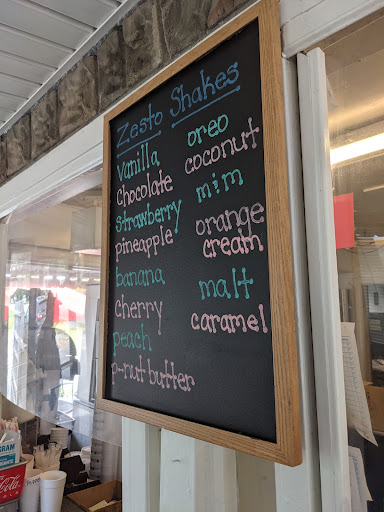 Zesto Shakes
vanilla
chocolate
strawberry
pineapple
banana
cherry
peach
p-nut butter
oreo
coconut
m&m
orange
cream
malt
caramel
GRAM
Coca-Cola